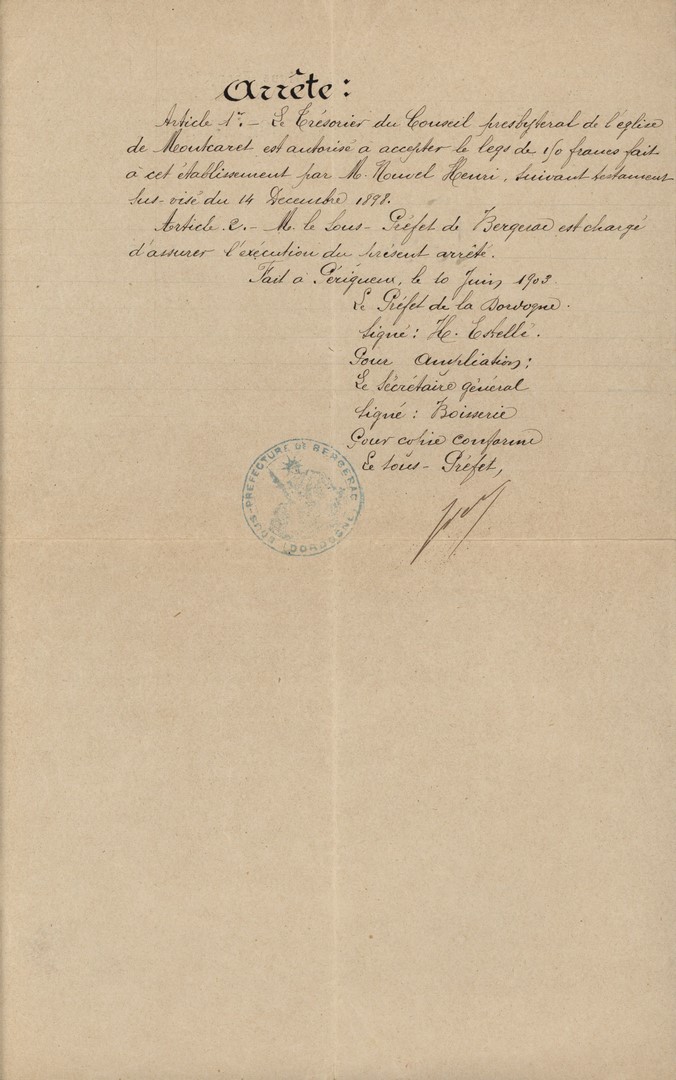 Arrête :
Article 1er. - Le Trésorier du Conseil presbytéral de l'église
de Montcaret est autorisé à accepter le legs de 150 francs fait
à cet établissement par M. Nouvel Henri, suivant testament
sus-visé du 14 Décembre 1898.
Article 2. - M. le Sous-Préfet de Bergerac est chargé
d'assurer l'exécution du présent arrêté.
Fait à Périgueux, le 10 Juin 1903
Le Préfet de la Dordogne.
Signé : H. Estellé.
Pour Ampliation :
Le Secrétaire général
Signé : Boisserie
Pour copie conforme
Le Sous-Préfet,
SOUS-PRÉFECTURE DE BERGERAC
(DORDOGNE)